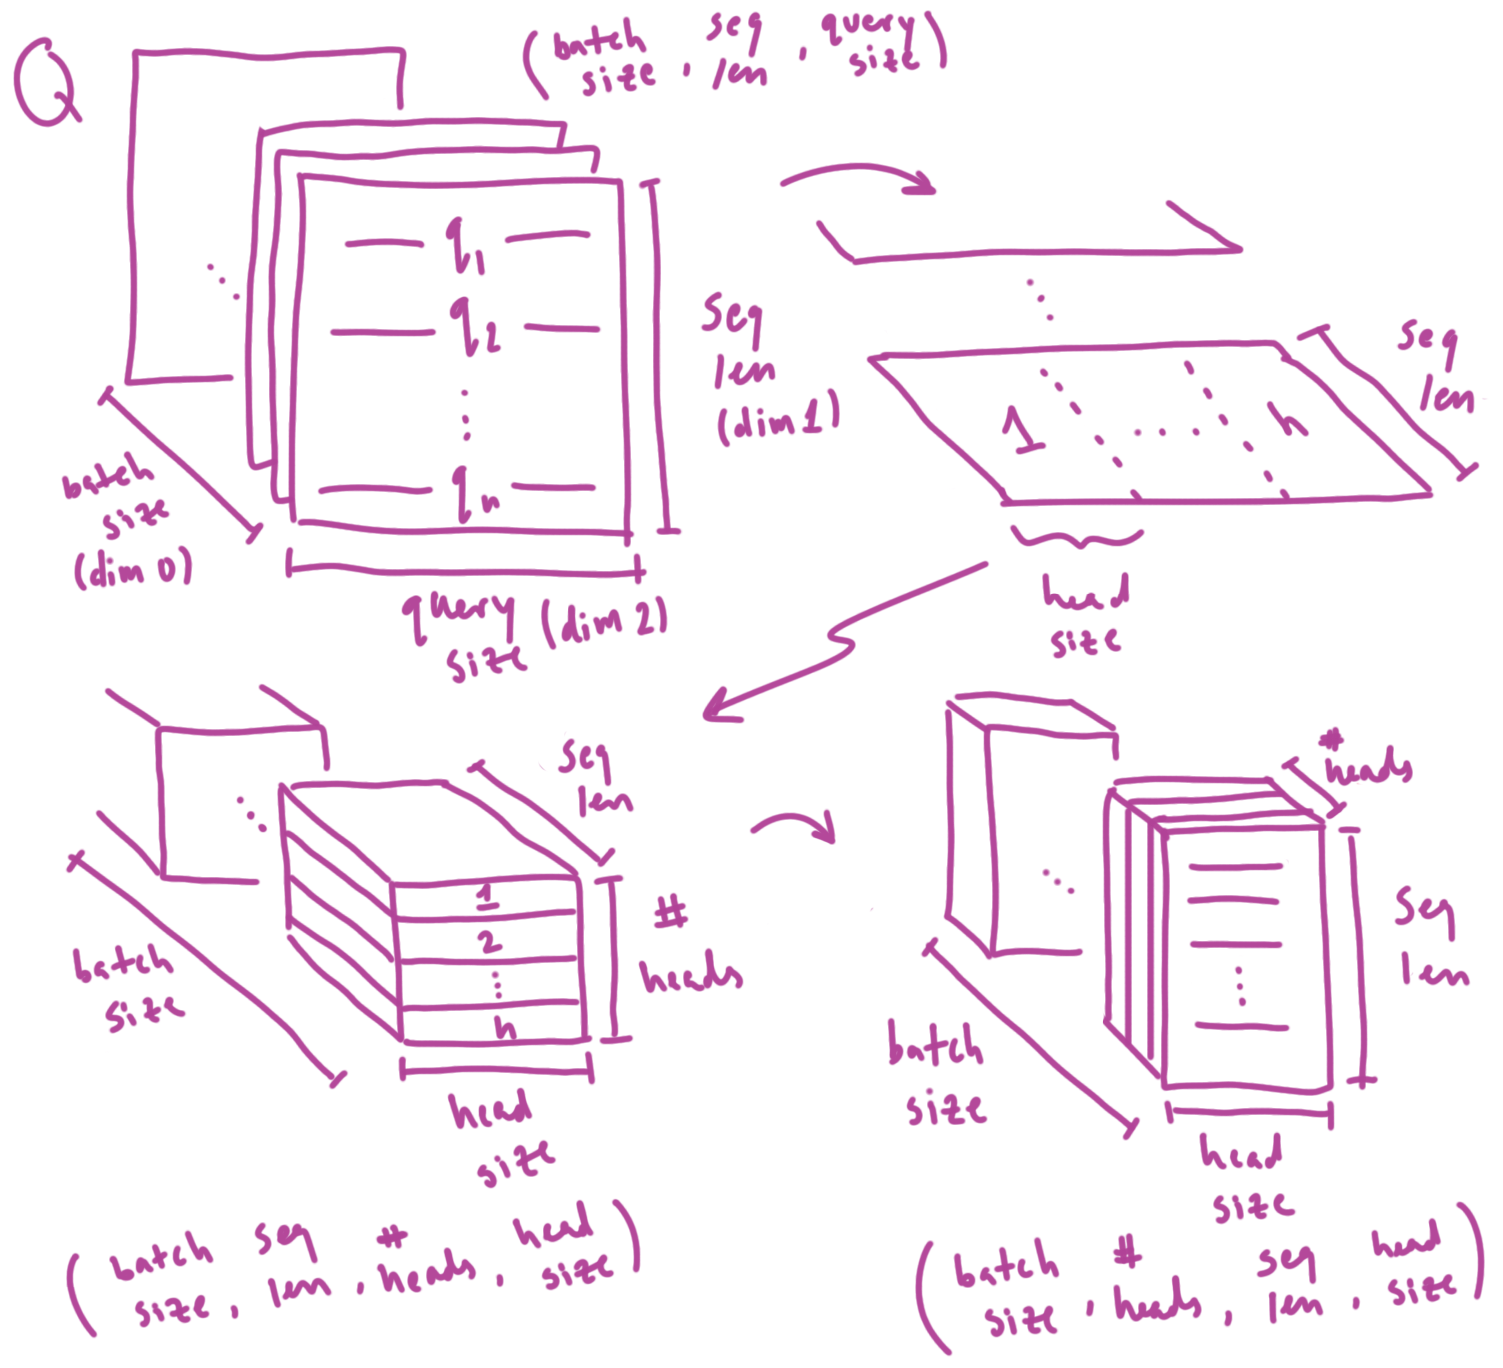 Q
(batch size, seq len, query size)
q1
q2
qn
seq
len
(dim 1)
batch
size
(dim 0)
query
size
(dim 2)
seq
len
1
h
head
size
seq
len
1
2
h
#
heads
batch
size
head
size
(batch size, seq len, # heads, head size)
#
heads
seq
len
batch
size
head
size
(batch size, # heads, seq len, head size)